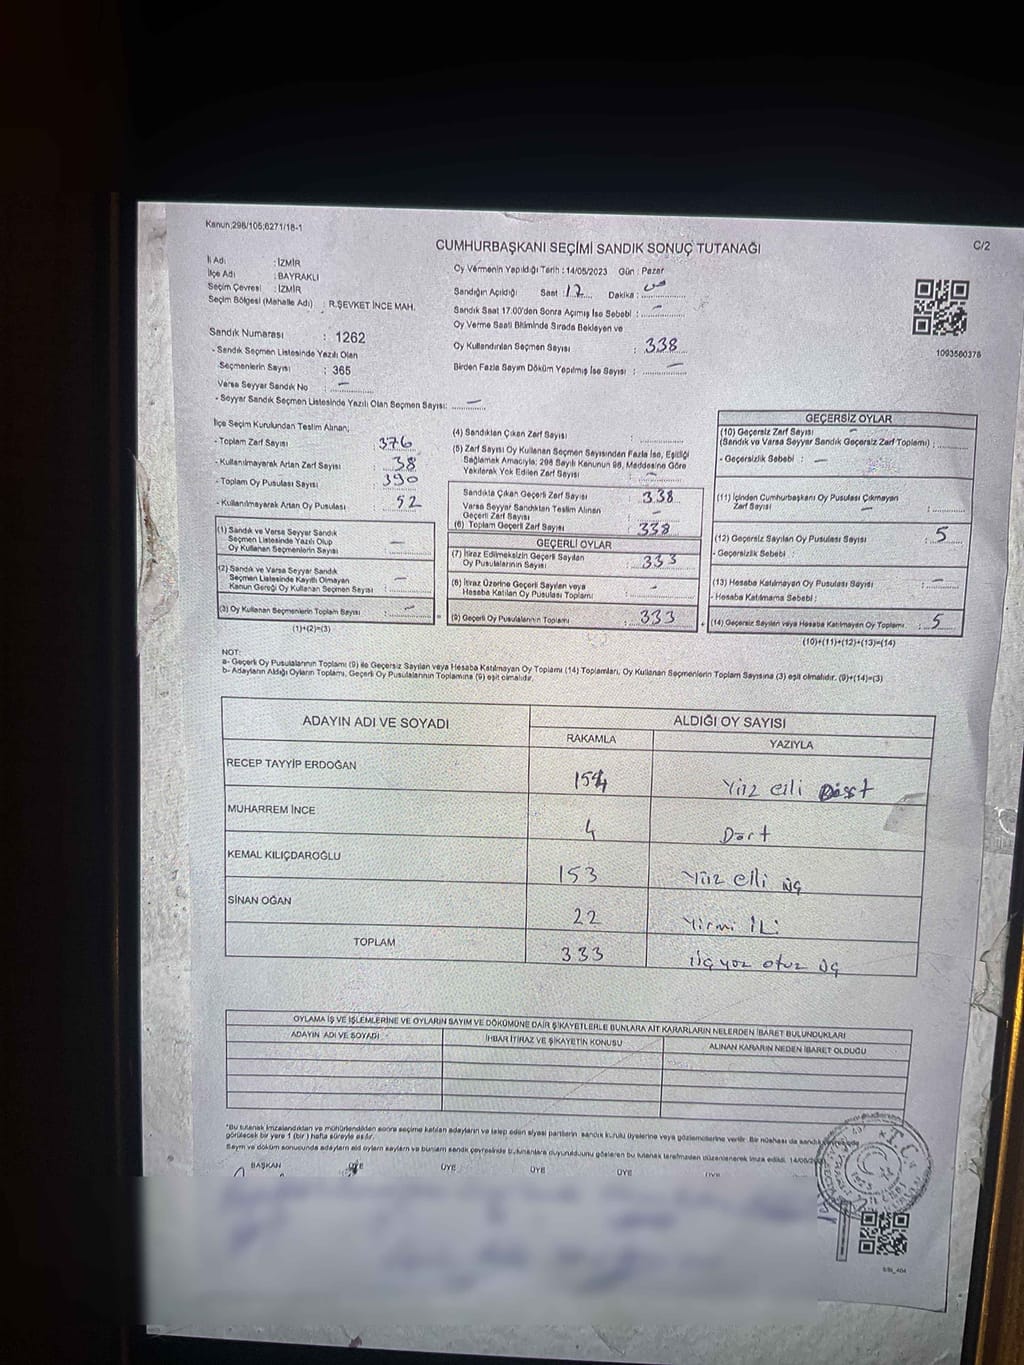 Kanun;298/105;6271/18-1
CUMHURBAŞKANI SEÇİMİ SANDIK SONUÇ TUTANAĞI
C/2
İl Adı : İZMİR
İlçe Adı : BAYRAKLI
Seçim Çevresi : İZMİR
Seçim Bölgesi (Mahalle Adı) : R.ŞEVKET İNCE MAH.
Oy Vermenin Yapıldığı Tarih : 14/05/2023 Gün : Pazar
Sandığın Açıldığı Saat : 17 Dakika :
Sandık Saat 17.00'den Sonra Açılmış İse Sebebi : —
Oy Verme Saati Bitiminde Sırada Bekleyen ve
Oy Kullandırılan Seçmen Sayısı : 338
Birden Fazla Sayım Döküm Yapılmış İse Sayısı : —
1093560376
Sandık Numarası : 1262
- Sandık Seçmen Listesinde Yazılı Olan
Seçmenlerin Sayısı : 365
Varsa Seyyar Sandık No : —
- Seyyar Sandık Seçmen Listesinde Yazılı Olan Seçmen Sayısı: —
İlçe Seçim Kurulundan Teslim Alınan;
- Toplam Zarf Sayısı : 376
- Kullanılmayarak Artan Zarf Sayısı : 38
- Toplam Oy Pusulası Sayısı : 390
- Kullanılmayarak Artan Oy Pusulası : 52
(1) Sandık ve Varsa Seyyar Sandık
Seçmen Listesinde Yazılı Olup
Oy Kullanan Seçmenlerin Sayısı : —
(2) Sandık ve Varsa Seyyar Sandık
Seçmen Listesinde Kayıtlı Olmayan
Kanun Gereği Oy Kullanan Seçmen Sayısı : —
(3) Oy Kullanan Seçmenlerin Toplam Sayısı : —
(1)+(2)=(3)
(4) Sandıktan Çıkan Zarf Sayısı :
(5) Zarf Sayısı Oy Kullanan Seçmen Sayısından Fazla İse, Eşitliği
Sağlamak Amacıyla; 298 Sayılı Kanunun 98. Maddesine Göre
Yakılarak Yok Edilen Zarf Sayısı : —
Sandıkta Çıkan Geçerli Zarf Sayısı : 338
Varsa Seyyar Sandıktan Teslim Alınan
Geçerli Zarf Sayısı : —
(6) Toplam Geçerli Zarf Sayısı : 338
GEÇERLİ OYLAR
(7) İtiraz Edilmeksizin Geçerli Sayılan
Oy Pusulalarının Sayısı : 333
(8) İtiraz Üzerine Geçerli Sayılan veya
Hesaba Katılan Oy Pusulası Toplamı : —
(9) Geçerli Oy Pusulalarının Toplamı : 333
GEÇERSİZ OYLAR
(10) Geçersiz Zarf Sayısı —
(Sandık ve Varsa Seyyar Sandık Geçersiz Zarf Toplamı) :
- Geçersizlik Sebebi : —
(11) İçinden Cumhurbaşkanı Oy Pusulası Çıkmayan
Zarf Sayısı — :
(12) Geçersiz Sayılan Oy Pusulası Sayısı : 5
- Geçersizlik Sebebi :
(13) Hesaba Katılmayan Oy Pusulası Sayısı : —
- Hesaba Katılmama Sebebi :
(14) Geçersiz Sayılan veya Hesaba Katılmayan Oy Toplamı : 5
(10)+(11)+(12)+(13)=(14)
NOT:
a- Geçerli Oy Pusulalarının Toplamı (9) ile Geçersiz Sayılan veya Hesaba Katılmayan Oy Toplamı (14) Toplamları, Oy Kullanan Seçmenlerin Toplam Sayısına (3) eşit olmalıdır. (9)+(14)=(3)
b- Adayların Aldığı Oyların Toplamı, Geçerli Oy Pusulalarının Toplamına (9) eşit olmalıdır.
ADAYIN ADI VE SOYADI
ALDIĞI OY SAYISI
RAKAMLA YAZIYLA
RECEP TAYYİP ERDOĞAN 154 Yüz elli Dört
MUHARREM İNCE 4 Dört
KEMAL KILIÇDAROĞLU 153 Yüz elli üç
SİNAN OĞAN 22 Yirmi İki
TOPLAM 333 üçyüz otuz üç
OYLAMA İŞ VE İŞLEMLERİNE VE OYLARIN SAYIM VE DÖKÜMÜNE DAİR ŞİKAYETLERLE BUNLARA AİT KARARLARIN NELERDEN İBARET BULUNDUKLARI
ADAYIN ADI VE SOYADI İHBAR İTİRAZ VE ŞİKAYETİN KONUSU ALINAN KARARIN NEDEN İBARET OLDUĞU
*Bu tutanak imzalandıktan ve mühürlendikten sonra seçime katılan adayların ve talep eden siyasi partilerin sandık kurulu üyelerine veya gözlemcilerine verilir. Bir nüshası da sandık
görülecek bir yere 1 (bir) hafta süreyle asılır.
Sayım ve döküm sonucunda adayların ait oyların sayım ve bunların sandık çevresinde duyurulduğunu gösteren bu tutanak tarafımızdan düzenlenerek imza edildi. 14/05/20
BAŞKAN ÜYE ÜYE ÜYE ÜYE ÜYE